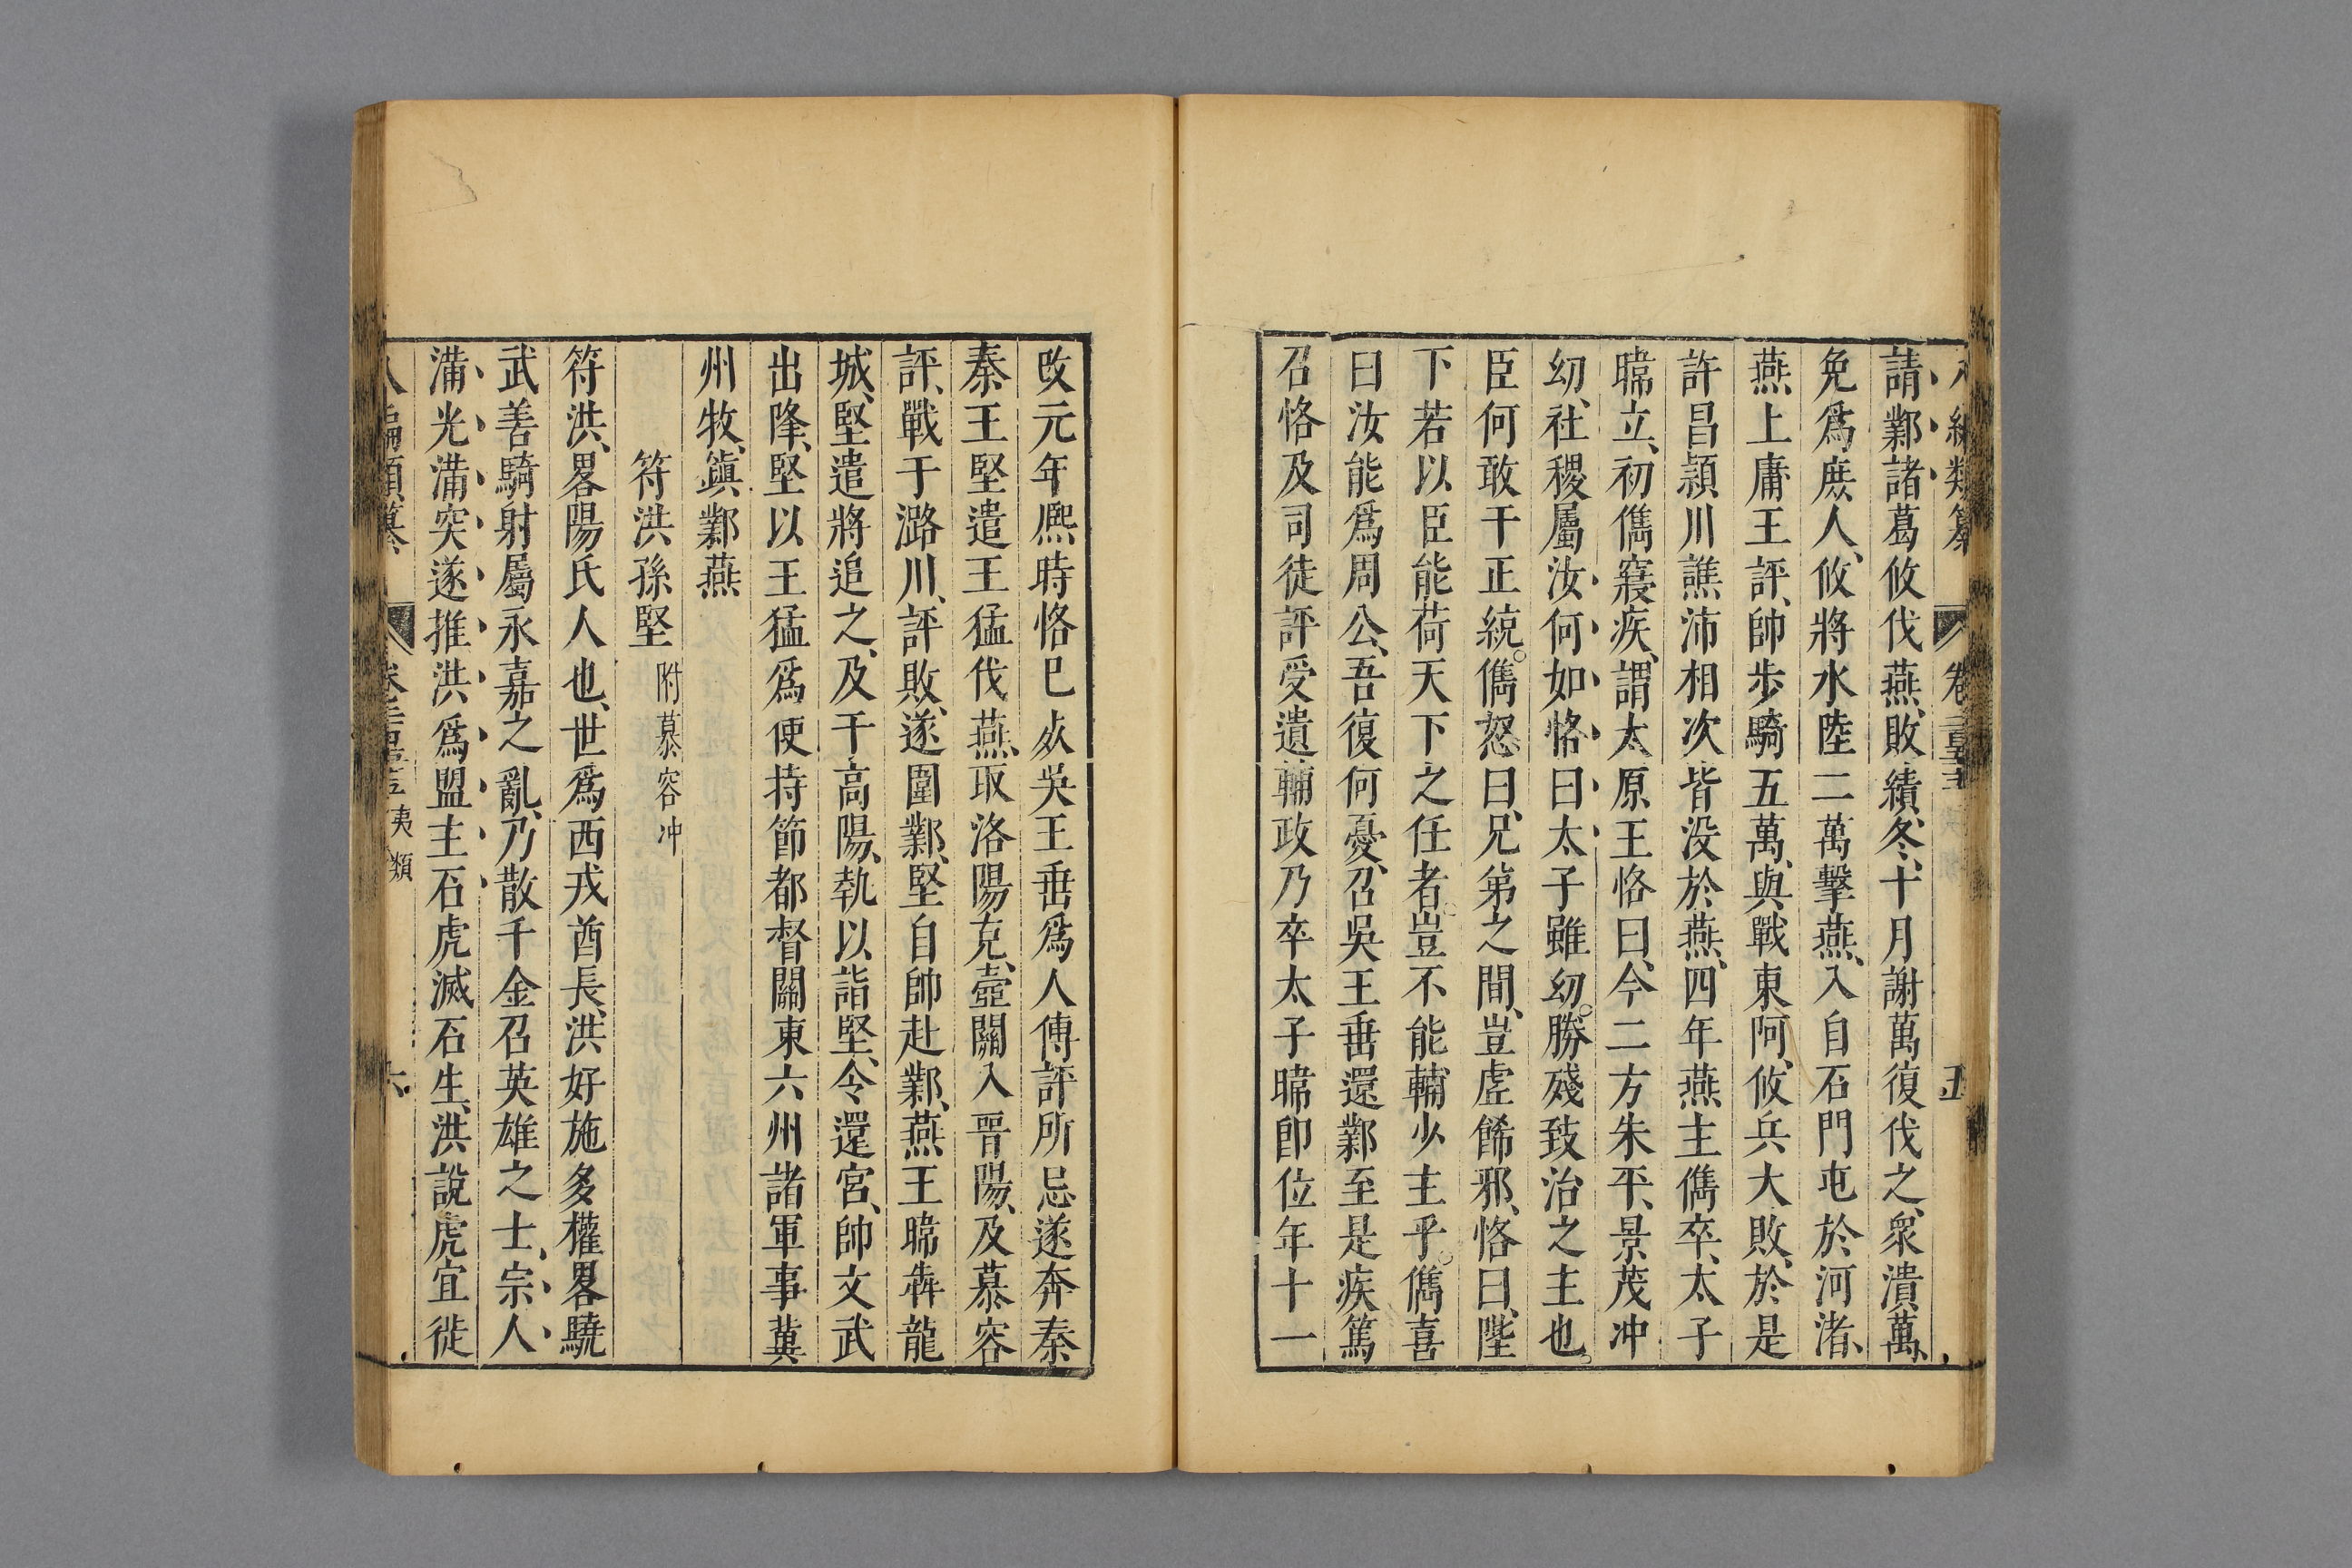 請鄴諸葛攸伐燕、敗績、冬、十月謝萬復伐之、衆潰、萬、
免爲庶人、攸將水陸二萬擊燕、入自石門屯於河渚、
燕上庸王評、帥步騎五萬、與戰東阿、攸兵大敗、於是
許昌潁川譙沛相次皆没於燕、四年燕主儁卒、太子
暐立、初儁寢疾、謂太原王恪曰、今二方未平、景茂冲
幼、社稷屬汝、何如恪曰、太子雖幼。勝殘致治之主也。
臣何敢干正統。儁怒曰、兄弟之間、豈虛餙邪、恪曰、陛
下若以臣能荷天下之任者。豈不能輔少主乎。儁喜
曰汝能爲周公、吾復何憂、召吳王垂還鄴至是疾篤
召恪及司徒評受遺輔政乃卒太子暐卽位年十一
改元年熈時恪已歿吳王垂爲人傅評所忌遂奔秦
秦王堅遣王猛伐燕、取洛陽克、壺關入晋陽、及慕容
評、戰于潞川、評敗、遂圍鄴、堅自帥赴鄴、燕王暐犇龍
城、堅遣將追之、及于高陽、執以詣堅、令還宮、帥文武
出降、堅以王猛爲使持節都督關東六州諸軍事冀
州牧、鎭鄴燕
符洪孫堅 附慕容冲
符洪、畧陽氏人也、世爲西戎酋長、洪好施多權畧驍
武善騎射屬永嘉之亂、乃散千金召英雄之士、宗人
蒲光蒲突遂推洪爲盟主石虎滅石生、洪說虎宜徙
八編類纂 卷二百五十三 夷類 六